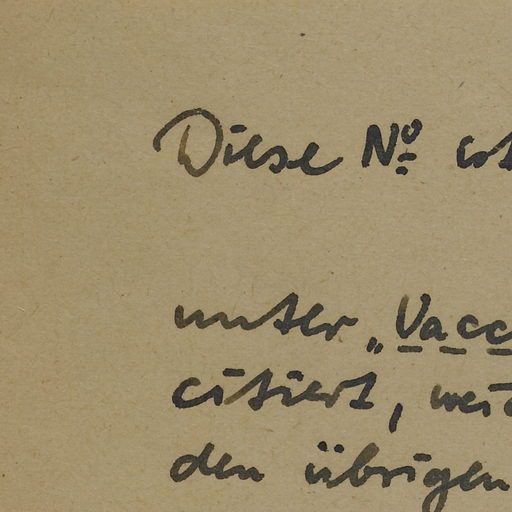 Diese Nº ist
unter „Vacc
citiert, wei
den übrigen